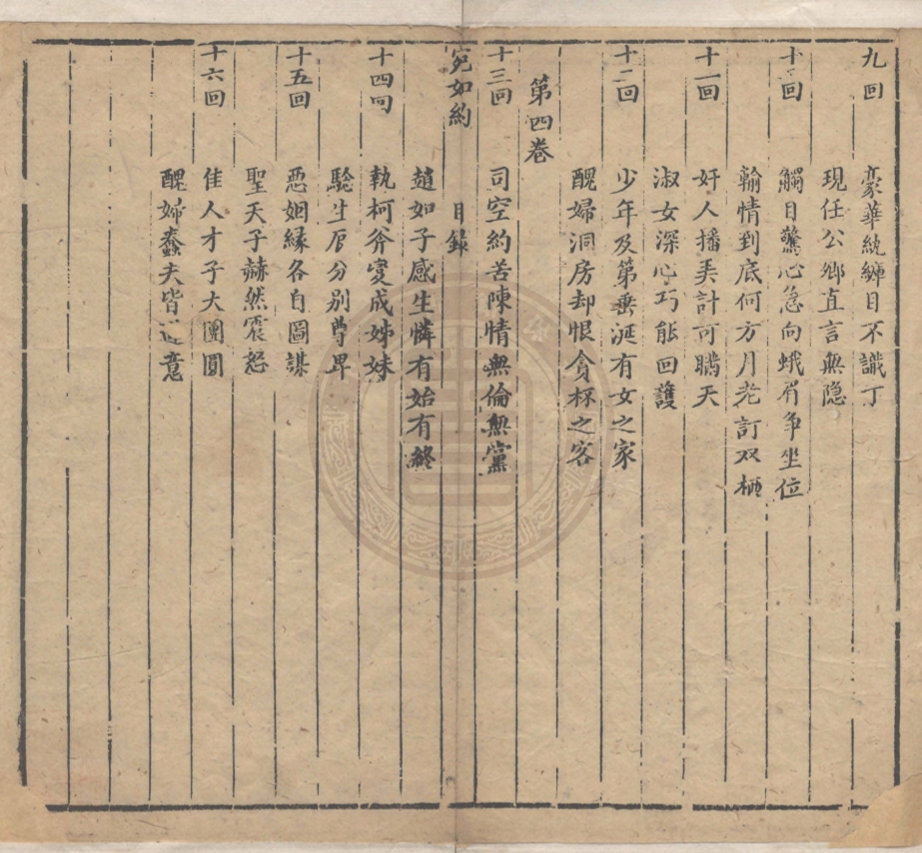 九回 豪華紈綺目不識丁
現任公卿直言無隐
十回 觸目驚心急向蛾眉争坐位
輸情到底何方月老訂双栖
十一回 奸人播弄計可瞞天
淑女深心巧能回護
十二回 少年及第垂涎有女之家
醜婦洞房却恨貪杯之客
第四卷
十三回 司空約苦陳情無倫無黨
宛如約 目録
趙如子感生憐有始有終
十四回 執柯斧变成姊妹
騐生厉分别尊卑
十五回 恶姻緣各自圖謀
聖天子赫然震怒
十六回 佳人才子大團圓
醜婦蠢夫皆 意